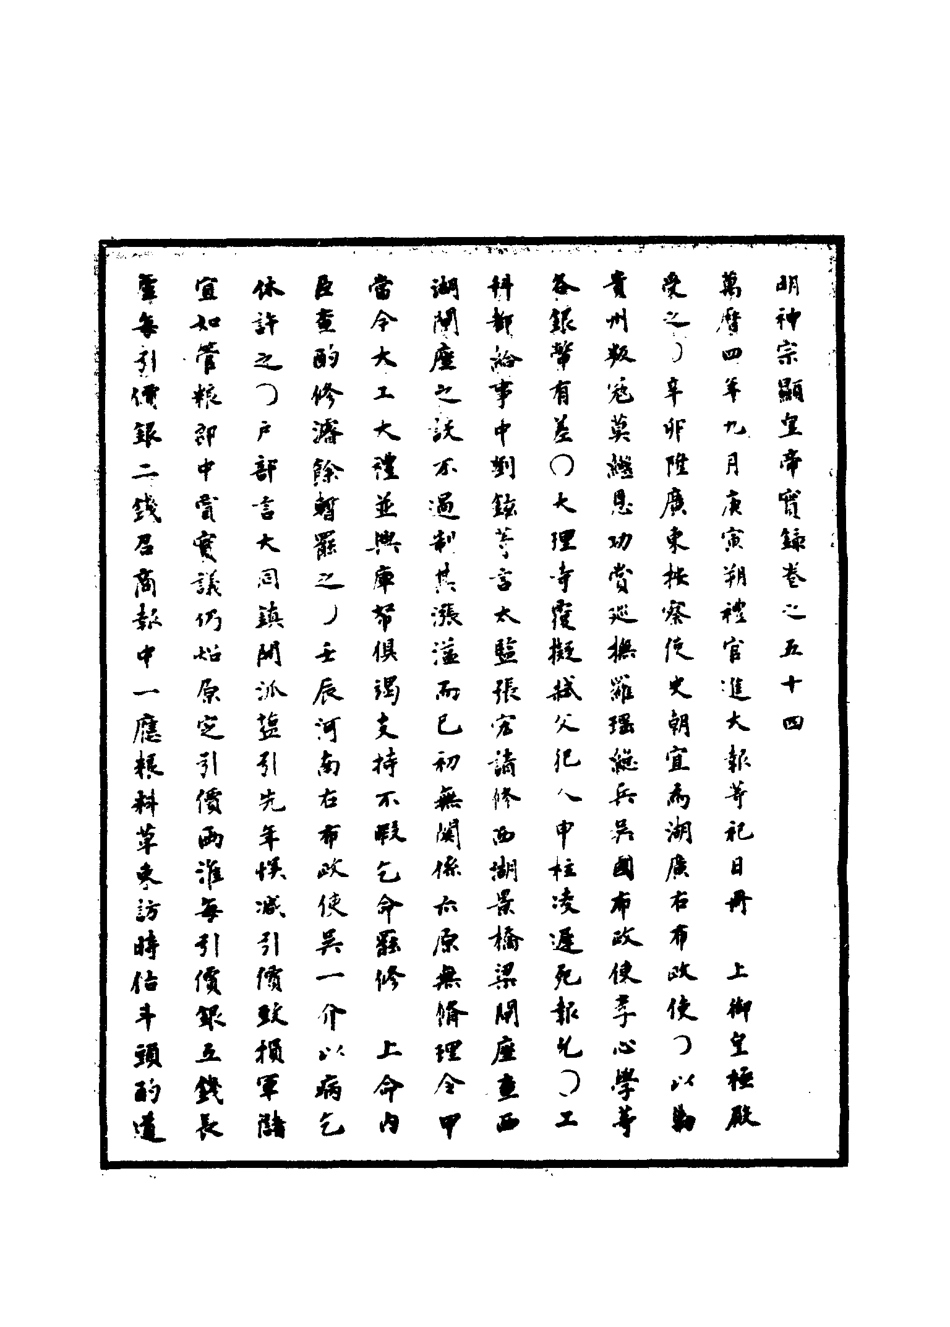 明神宗顯皇帝實錄卷之五十四
萬曆四年九月庚寅朔禮官進大報等祀日冊　上御皇極殿
受之○辛卯陞廣東按察使史朝宜為湖廣右布政使○以勦
貴州叛寇莫繼恩功賞巡撫羅瑶總兵吳國布政使李心學等
各銀幣有差○大理寺覆擬弒父犯人申柱凌遲死報允○工
科都給事中劉鉉等言太監張宏請修西湖景橋梁閘座查西
湖閘座之設不過制其漲溢而已初無関係亦原無脩理令甲
當今大工大禮並興庫帑俱竭支持不暇乞命罷修　上命內
臣查酌修濬餘暫罷之○壬辰河南右布政使吳一介以病乞
休許之○戶部言大同鎮開派鹽引先年悮減引價致損軍儲
宜如管粮郎中賞實議仍始原定引價両淮每引價銀五錢長
蘆每引價銀二錢召商報中一應粮料草束訪時估斗頭酌遠